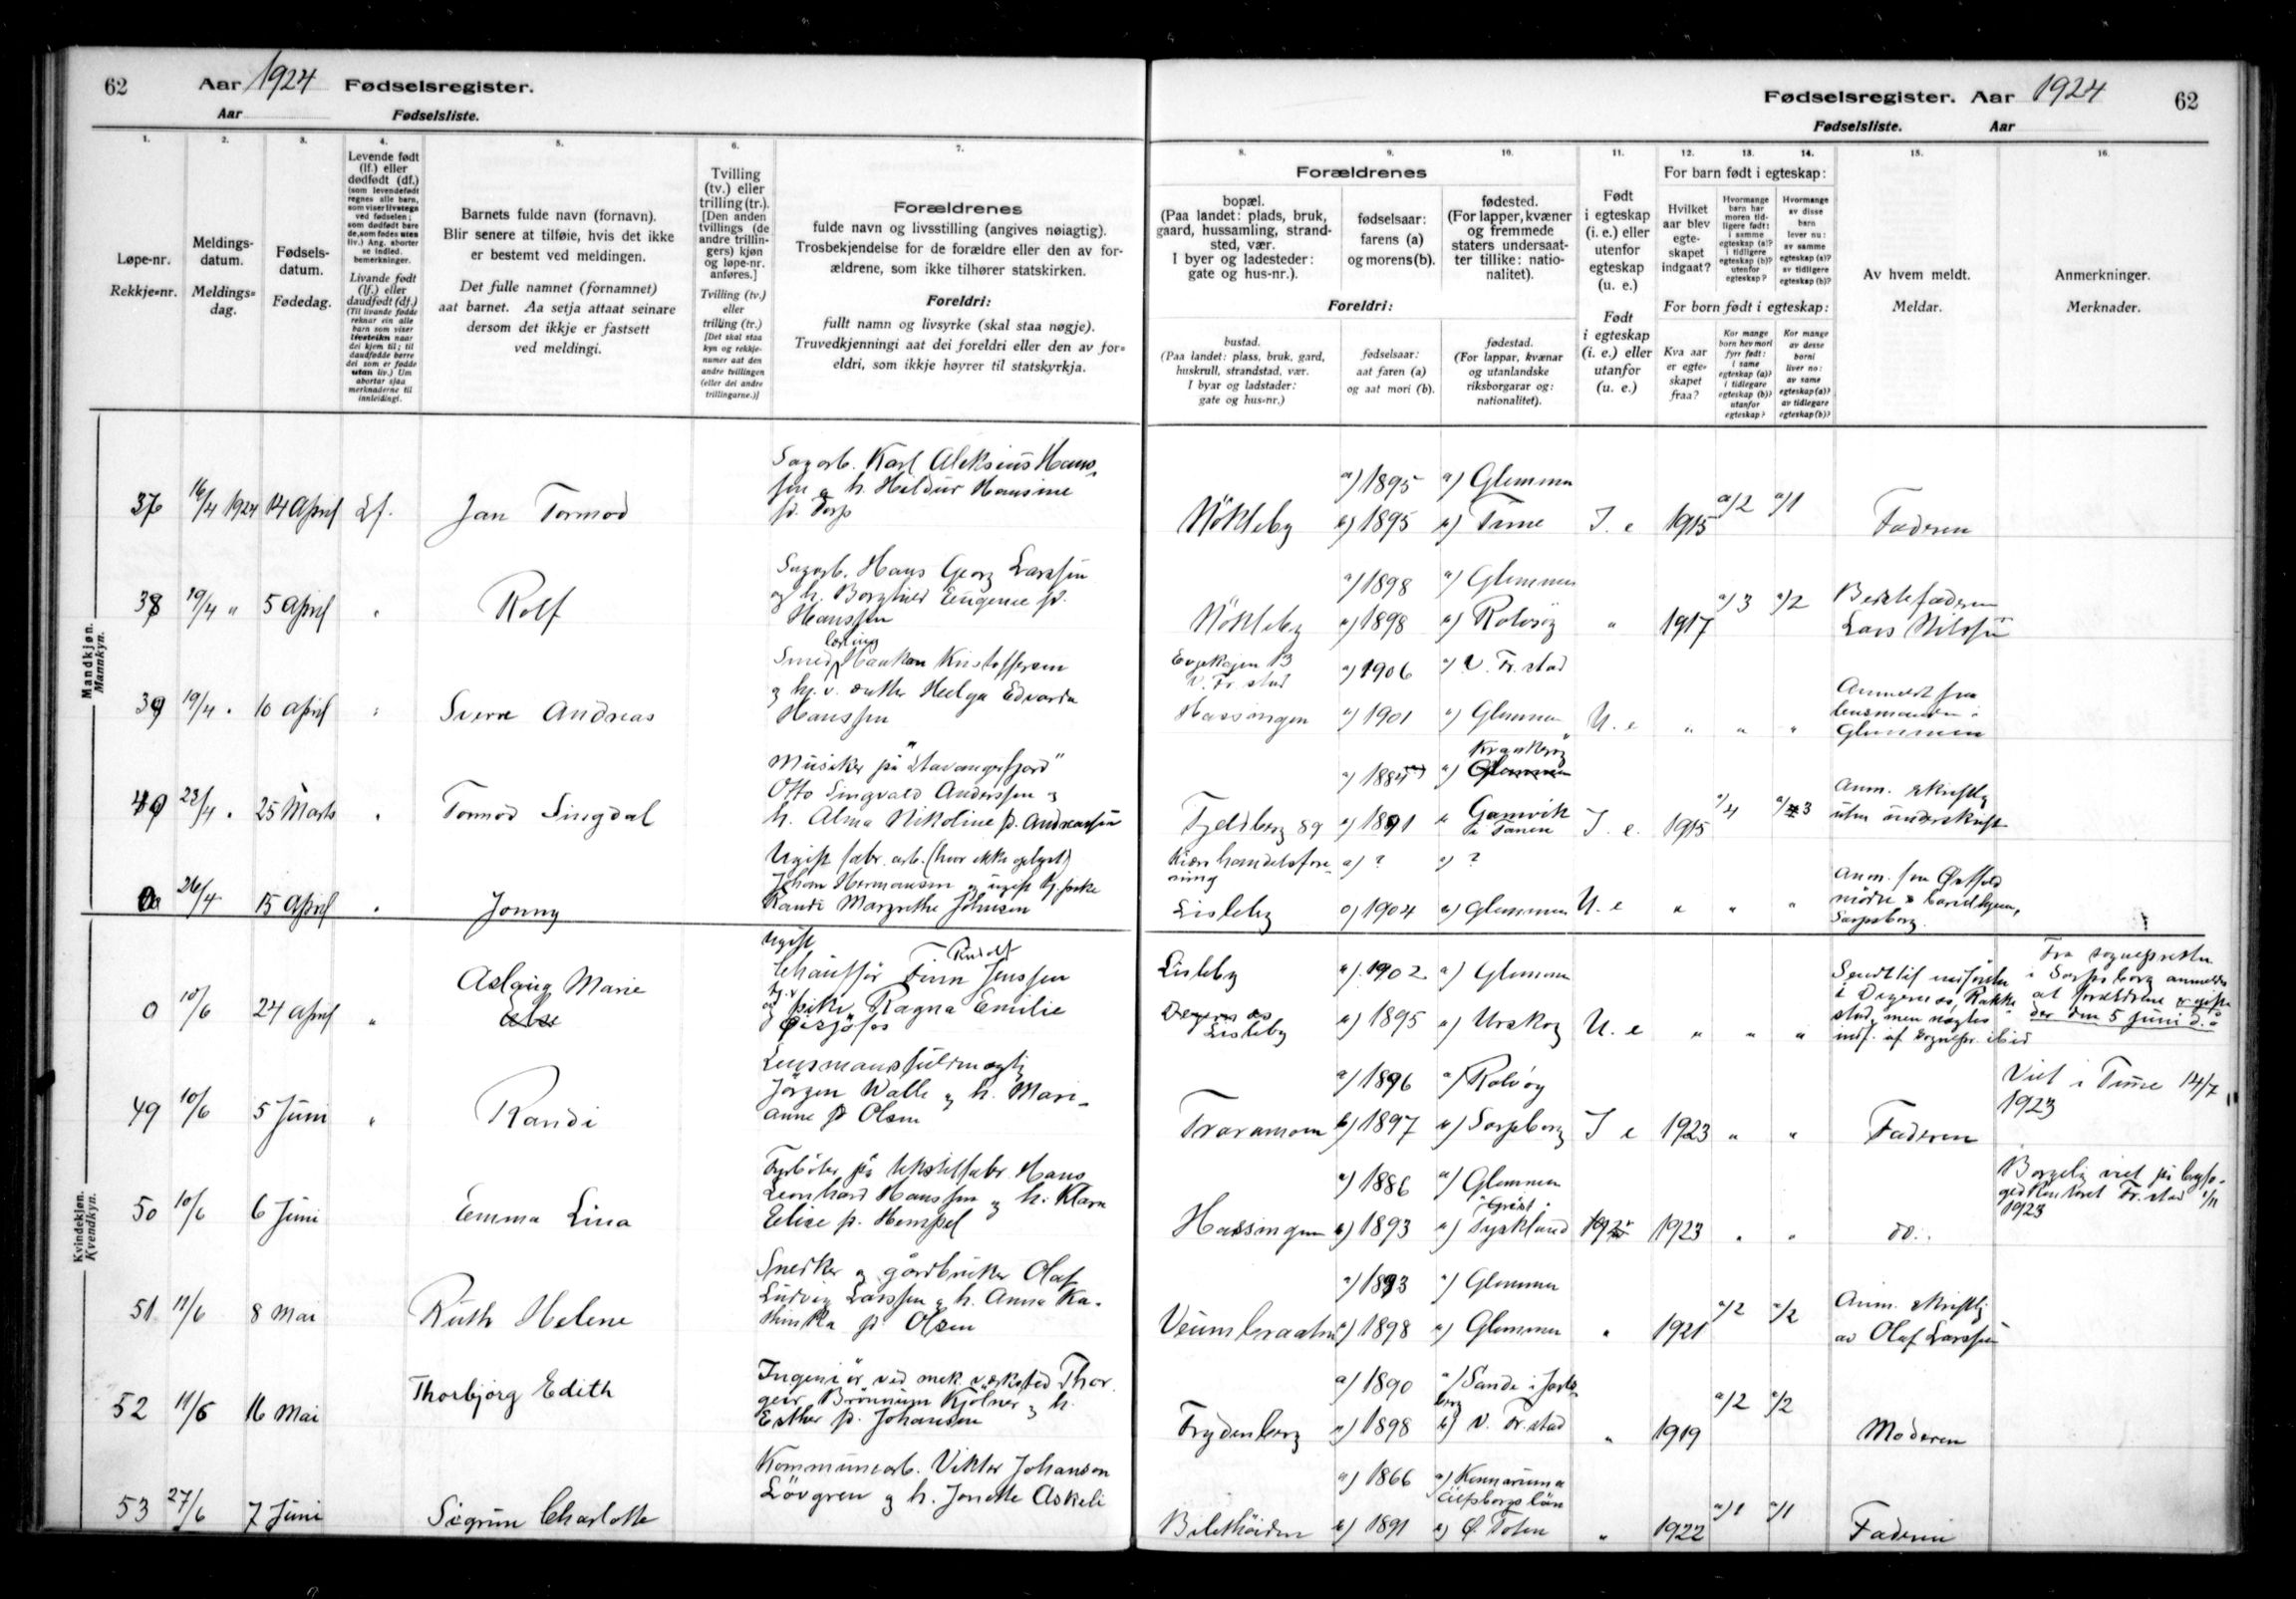 62
Aar 1924 Fødselsregister.
Aar
Fødselsliste.
1.
2.
3.
4.
5.
6.
7.
Løpe-nr.
Rekkje=nr.
Meldings-
datum.
Meldings=
dag.
Fødsels-
datum.
Fødedag.
Levende født
(lf.) eller
dødfødt (df.)
(som levendefødt
regnes alle barn,
som viser livstegn
ved fødselen;
som dødfødt bare
de, som fødes uten
liv.) Ang. aborter
se indled.
bemerkninger.
Livande født
(lf.) eller
daudfødt (df.)
(Til livande fødde
reknar ein alle
barn som viser
livsteikn naar
dei kjem til; til
daudfødde berre
dei som er fødde
utan liv.) Um
abortar sjaa
merknaderne til
innleidingi.
Barnets fulde navn (fornavn).
Blir senere at tilføie, hvis det ikke
er bestemt ved meldingen.
Det fulle namnet (fornamnet)
aat barnet. Aa setja attaat seinare
dersom det ikkje er fastsett
ved meldingi.
Tvilling
(tv.) eller
trilling (tr.).
[Den anden
tvillings (de
andre trillin-
gers) kjøn
og løpe-nr.
anføres.]
Tvilling (tv.)
eller
trilling (tr.)
[Det skal staa
kyn og rekkje-
numer aat den
andre tvillingen
(eller dei andre
trillingarne.)]
Forældrenes
fulde navn og livsstilling (angives nøiagtig).
Trosbekjendelse for de forældre eller den av for-
ældrene, som ikke tilhører statskirken.
Foreldri:
fullt namn og livsyrke (skal staa nøgje).
Truvedkjenningi aat dei foreldri eller den av for=
eldri, som ikkje høyrer til statskyrkja.
Mandkjøn.
Mannkyn.
37 16/4 1924 14 April Lf. Jan Tormod
Sagarb. Karl Aleksius Hans-
sen og h. Hildur Hansine
f. Torp
38 19/4 " 5 April " Rolf
Sagarb. Hans Georg Larssen
og h. Borghild Eugenie f.
Hanssen
39 19/4 " 10 April " Sverre Andreas
Smedlærling Haakon Kristoffersen
og hj.v. datter Helga Edvarda
Hanssen
40 23/4 " 25 Marts " Tormod Singdal
Musiker på "Stavangerfjord"
Otto Singvald Anderssen og
h. Alma Nikoline f. Andreassen
0 26/4 15 April " Jonny
Ugift fabr. arb. (hvor ikke oplyst)
Johan Hermansen og ugift hj. pike
Randi Margrethe Johnsen
Kvindekjøn.
Kvendkyn.
0 10/6 24 April " Aslaug Marie
Else
Ugift
Chauffør Finn Rudolf Jenssen
og hj.v. pike Ragna Emilie
49 10/6 5 Juni " Randi
Lensmansfuldmægtig
Jørgen Walle og h. Mari-
anne f. Olsen
50 10/6 6 Juni Emma Lina
Fyrbøter på tekstilfabr. Hans
Leonhard Hanssen og h. Klara
Elise f. Hempel
51 11/6 8 Mai Ruth Helene
Snedker og gårdbruker Olaf
Ludvig Larssen og h. Anna Ka-
thinka f. Olsen
52 11/6 16 Mai Thorbjørg Edith
Ingeniør ved mek. verksted Thor-
geir Brönnum Kjölner og h.
Esther f. Johansen
53 27/6 7 Juni Sigrun Charlotte
Kommunearb. Viktor Johanson
Lövgren og h. Jonette Askeli
Fødselsregister. Aar 1924
62
Fødselsliste. Aar
8.
9.
10.
11.
12.
13.
14.
15.
16.
Forældrenes
bopæl.
(Paa landet: plads, bruk,
gaard, hussamling, strand-
sted, vær.
I byer og ladesteder:
gate og hus-nr.).
fødselsaar:
farens (a)
og morens (b).
fødested.
(For lapper, kvæner
og fremmede
staters undersaat-
ter tillike: natio-
nalitet).
Foreldri:
bustad.
(Paa landet: plass, bruk, gard,
huskrull, strandstad, vær.
I byar og ladstader:
gate og hus=nr.)
fødselsaar:
aat faren (a)
og aat mori (b).
fødestad.
(For lappar, kvænar
og utanlandske
riksborgarar og:
nationalitet).
Født
i egteskap
(i. e.) eller
utenfor
egteskap
(u. e.)
Født
i egteskap
(i. e.) eller
utanfor
(u. e.)
For barn født i egteskap:
Hvilket
aar blev
egte-
skapet
indgaat?
Hvormange
barn har
moren tid-
ligere født:
i samme
egteskap (a)?
i tidligere
egteskap (b)?
utenfor
egteskap?
Hvormange
av disse
barn
lever nu:
av samme
egteskap (a)?
av tidligere
egteskap (b)?
For born født i egteskap:
Kva aar
er egte-
skapet
fraa?
Kor mange
born hev mori
fyrr født:
i same
egteskap (a)?
i tidlegare
egteskap (b)?
utanfor
egteskap?
Kor mange
av desse
borni
liver no:
av same
egteskap (a)?
av tidlegare
egteskap (b)?
Av hvem meldt.
Meldar.
Anmerkninger.
Merknader.
a) 1895 a) Glemmen
Nökleby b) 1895 b) Tune I. e 1915 a/2 a/1 Faderen
a) 1898 a) Glemmen
Nökleby b) 1898 b) Rolvsöy " 1917 a/3 a/2 Bestefaderen
Lars Nilssen
Evjekajen 13
V. Fr.stad
a) 1906 a) V. Fr.stad
Hassingen b) 1901 b) Glemmen U. e " " "
Anmeldt fra
lensmanden i
Glemmen
a) 1884 a) Kråkerøy
Glemmen
Fjeldberg 89 b) 1891 b) Gamvik
i Tanen I. e. 1915 a/4 a/3
Anm. skriftlig
uten underskrift
Kiærs handelsfore-
ning
a) ? a) ?
Lisleby b) 1904 b) Glemmen U. e " " "
Anm. fra Østfold
mödre & barnehjem,
Sarpsborg.
Lisleby a) 1902 a) Glemmen
Degernes
Lisleby b) 1895 b) Urskog U. e " " "
i Degernes, Rakke-
stad, men nægtes
indf. af sognepr. ibid
Fra sognepresten
i Sarpsborg anmeldes
at forældrene er gifte
der den 5 juni d. å
a) 1896 a) Rolvsøy
Traramoen b) 1897 b) Sarpsborg I e 1923 " " Faderen
Viet i Tune 14/7
1923
a) 1886 a) Glemmen
Hassingen b) 1893 b) Greiz i
Tyskland 1923 " " do.
Borgelig viet på byfo-
gedkontoret Fr.stad 1/11
1923
a) 1893 a) Glemmen
Veumbraaten b) 1898 b) Glemmen " 1921 a/2 a/2
Anm. skriftlig
av Olaf Larssen
a) 1890 a) Sande i Jarls-
berg
Frydenberg b) 1898 b) V. Fr.stad " 1919 a/2 a/2 Moderen
a) 1866 a) Kinnarumma
Elfsborgs län
b) 1891 b) Ø. Toten " 1922 a/1 a/1 Faderen